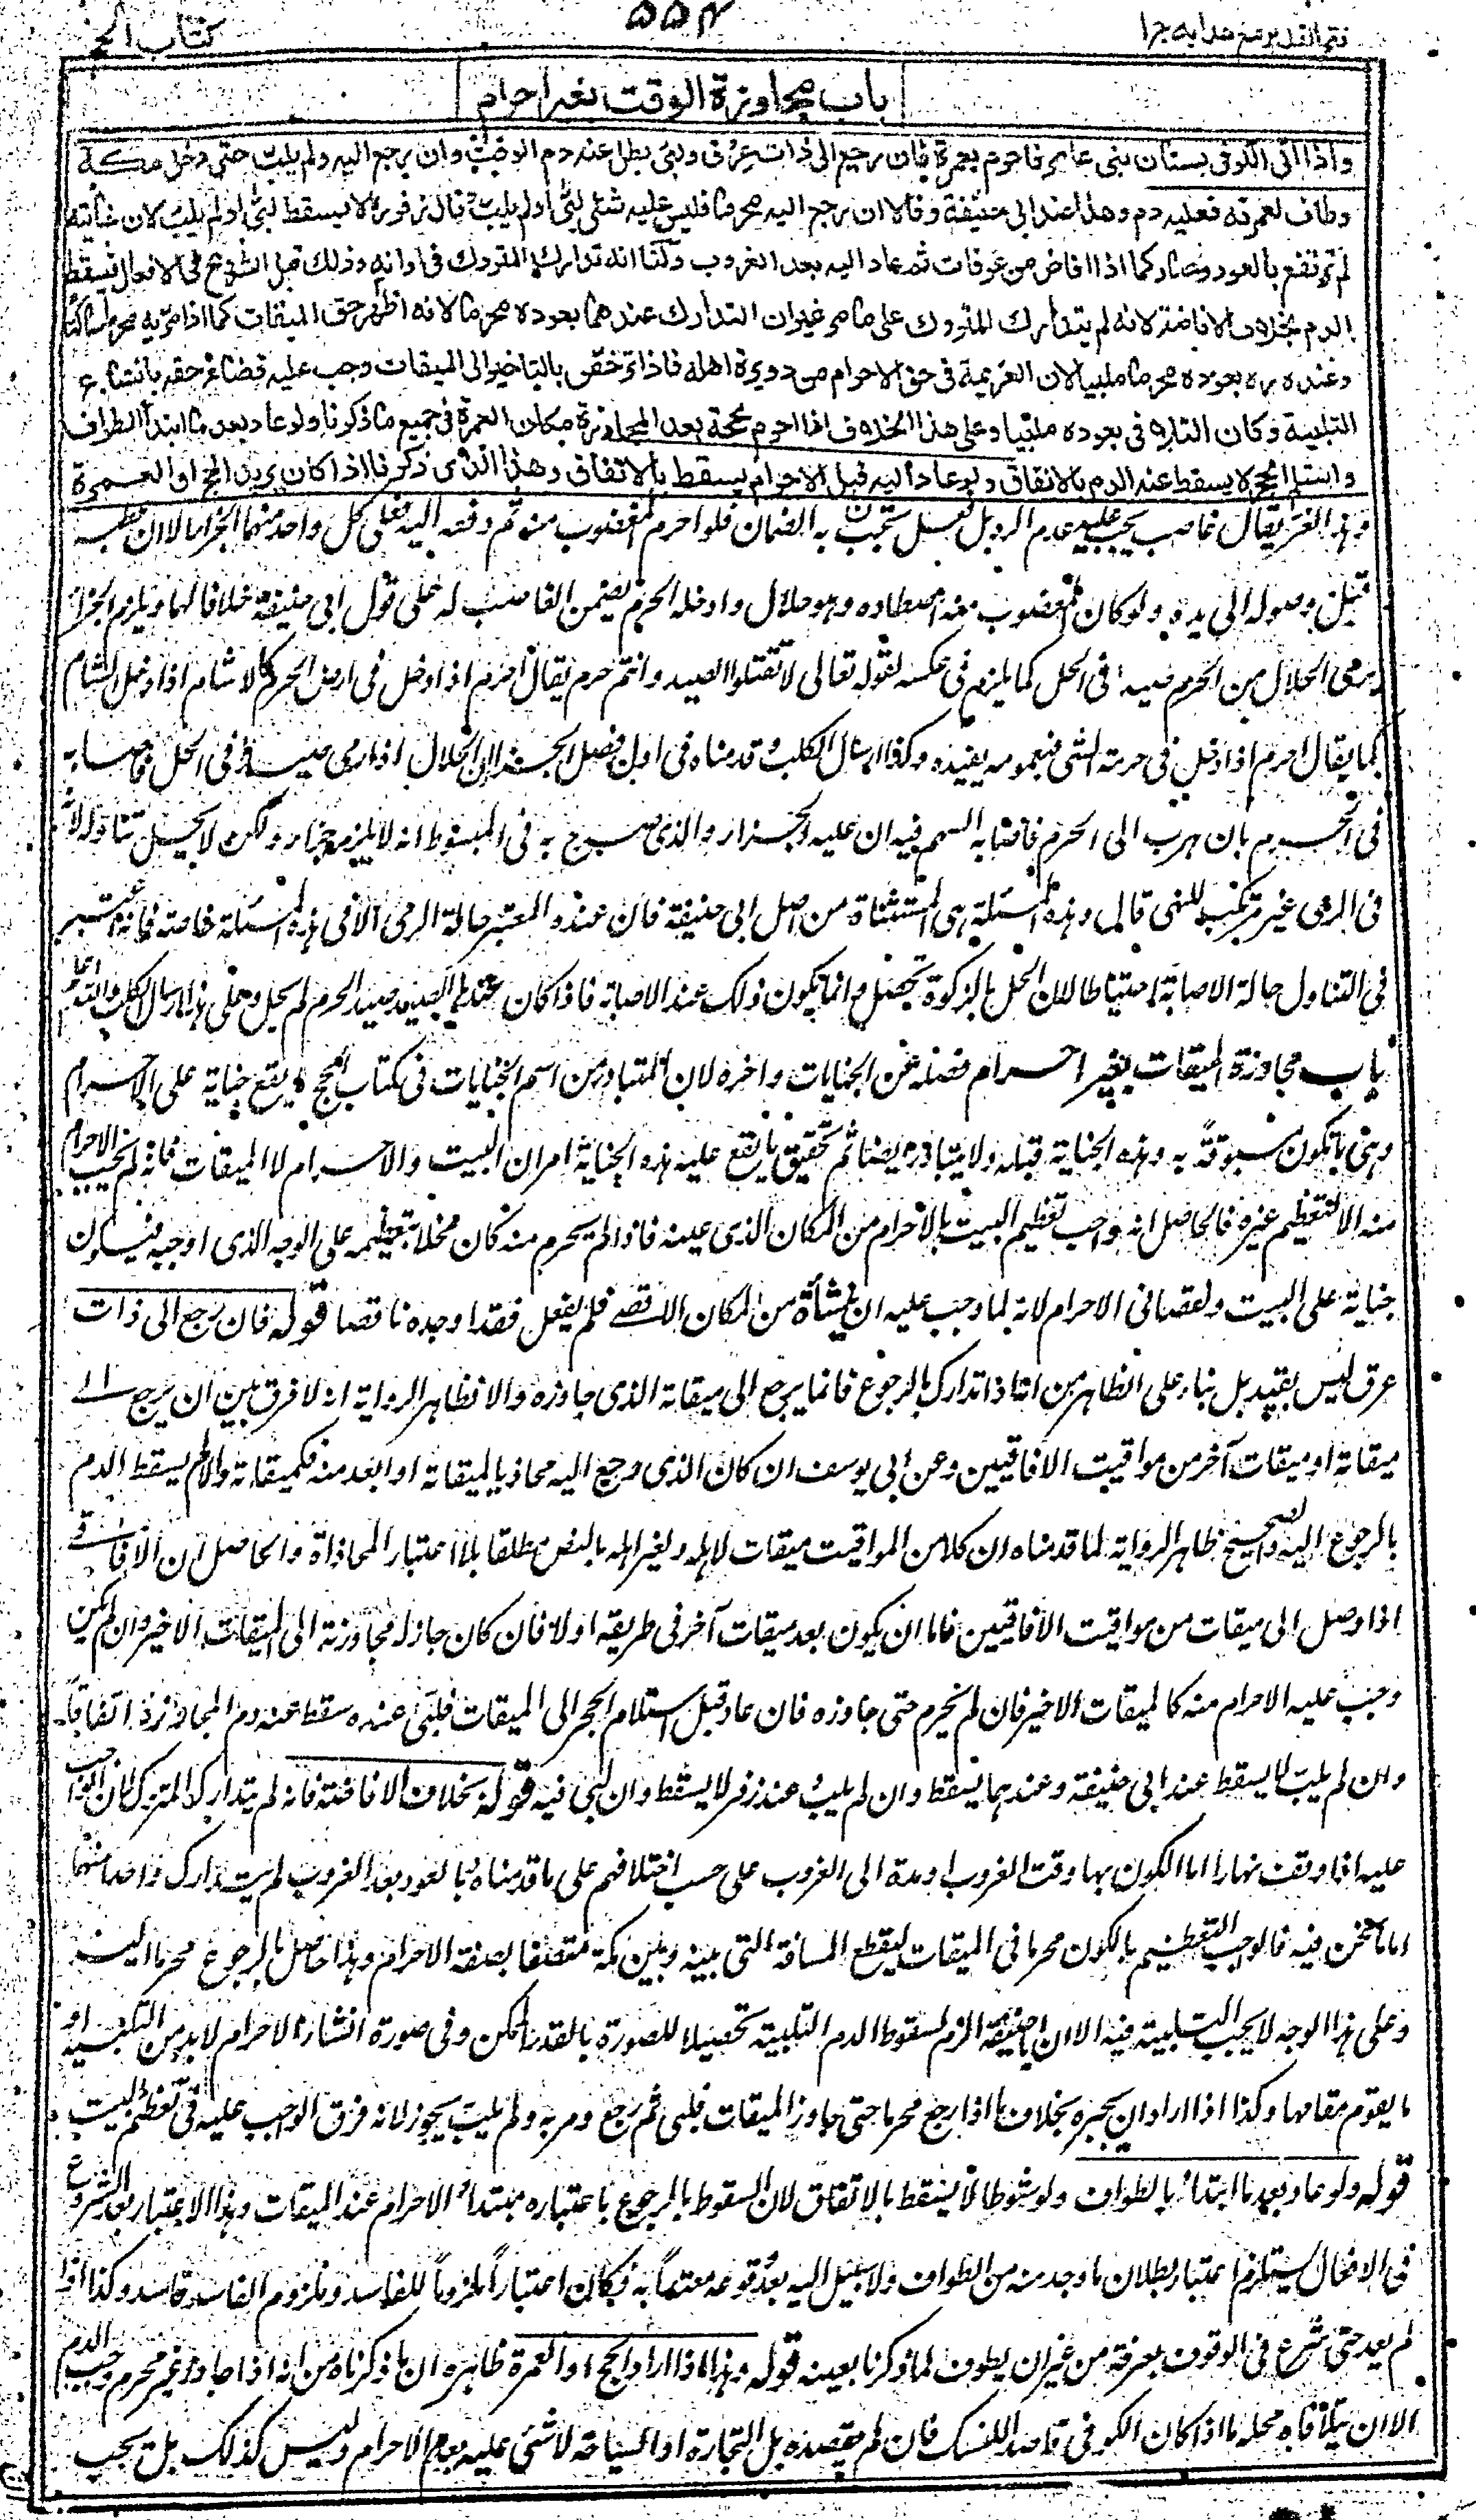 فتح القدير مع هدايه ج ١
٥٥٤
كتاب الحج
باب مجاوزة الوقت بغير احرام
واذا اتى الكوفى بستان بنى عامر فاحرم بعمرة فان رجع الى ذات عرق ولبى بطل عنه دم الوقت وان رجع اليه ولم يلب حتى دخل مكة
وطاف لعمرته فعليه دم وهذا عند ابى حنيفة وقالا ان رجع اليه محرما فليس عليه شئ لبى او لم يلب وقال زفر لا يسقط لبى او لم يلب لان جنايته
لم ترتفع بالعود وصار كما اذا افاض من عرفات ثم عاد اليه بعد الغروب ولنا انه تدارك المتروك فى اوانه وذلك قبل الشروع فى الافعال فيسقط
الدم بخلاف الافاضة لانه لم يتدارك المتروك على ما مر غير ان التدارك عندهما بعوده محرما لانه اظهر حق الميقات كما اذا مر به محرما ساكتا
وعنده ره بعوده محرما ملبيا لان العزيمة فى حق الاحرام من دويرة اهله فاذا ترخص بالتاخير الى الميقات وجب عليه قضاء حقه بانشاء
التلبية وكان التلافى بعوده ملبيا وعلى هذا الخلاف اذا احرم بحجة بعد المجاوزة مكان العمرة فى جميع ما ذكرنا ولو عاد بعد ما ابتدأ الطواف
واستلم الحجر لا يسقط عنه الدم بالاتفاق ولو عاد اليه قبل الاحرام يسقط بالاتفاق وهذا الذى ذكرنا اذا كان يريد الحج او العمرة
يقال غاصب يجب عليه عدم الرد بل لو فعل يجب به الضمان فلو احرم المغصوب منه ثم دفعه اليه فعلى كل واحد منهما الجزاء الا ان عطب
قبل وصوله الى يده ولو كان المغصوب منه اصطاده وهو حلال وادخله الحرم يضمن الغاصب له على قول ابى حنيفة خلافا لهما ويلزم الجزاء
برمى الحلال من الحرم صيدا فى الحل كما يلزم فى عكسه لقوله تعالى لا تقتلوا الصيد وانتم حرم يقال احرم اذا دخل فى ارض الحرم كالاشام اذا دخل الشام
كما يقال احرم اذا دخل فى حرمة الشئ فبعمومه يفيده وكذا ارسال الكلب وقدمناه فى اول فصل الجزاء ان الحلال اذا رمى صيدا فى الحل فاصابه
فى الحرم بان هرب الى الحرم فاصابه السهم فيه ان عليه الجزاء والذى صرح به فى المبسوط انه لا يلزمه جزاء ولكن لا يحل تناوله لانه
فى الرمى غير مرتكب للنهى قال وهذه المسئلة هى المستثناة من اصل ابى حنيفة فان عنده المعتبر حالة الرمى الا فى هذه المسئلة خاصة فانه اعتبر
فى التناول حالة الاصابة احتياطا لان الحل بالزكوة يحصل وانما يكون ذلك عند الاصابة فاذا كان عندها الصيد صيد الحرم لم يحل وعلى هذا ارسال الكلب والله اعلم
باب مجاوزة الميقات بغير احرام فصله عن الجنايات واخره لان المتبادر من اسم الجنايات فى كتاب الحج ما يقع جناية على الاحرام
وهى ما تكون مسبوقة به وهذه الجناية قبله ولا يتبادر ايضا ثم تحقيق ما يقع عليه هذه الجناية امران البيت والاحرام لا الميقات فانه لم يجب الاحرام
منه الا لتعظيم غيره فالحاصل انه وجب تعظيم البيت بالاحرام من المكان الذى عينه فاذا لم يحرم منه كان مخلا بتعظيمه على الوجه الذى اوجبه فيكون
جناية على البيت ونقصا فى الاحرام لانه لما وجب عليه ان ينشأه من المكان الاقصى فلم يفعل فقد اوجده ناقصا قوله فان رجع الى ذات
عرق ليس بقيد بل بناء على الظاهر من انه اذا تدارك بالرجوع فانما يرجع الى ميقاته الذى جاوزه والا فظاهر الرواية انه لا فرق بين ان يرجع الى
ميقاته او ميقات آخر من مواقيت الافاقيين وعن ابى يوسف ان كان الذى رجع اليه محاذيا لميقاته او ابعد منه فكميقاته والا لم يسقط الدم
بالرجوع اليه والصحيح ظاهر الرواية لما قدمناه ان كلا من المواقيت ميقات لاهله ولغير اهله بالنص مطلقا بلا اعتبار المحاذاة والحاصل ان الافاقى
اذا وصل الى ميقات من مواقيت الافاقيين فاما ان يكون بعد ميقات آخر فى طريقه اولا فان كان جاز له مجاوزته الى الميقات الاخير وان لم يكن
وجب عليه الاحرام منه كالميقات الاخير فان لم يحرم حتى جاوزه فان عاد قبل استلام الحجر الى الميقات فلبى عنده سقط عنه دم المجاوزة اتفاقا
وان لم يلب لا يسقط عند ابى حنيفة وعندهما يسقط وان لم يلب وعند زفر لا يسقط وان لبى فيه قوله بخلاف الافاضة فانه لم يتدارك المتروك لان الواجب
عليه اذا وقف نهارا اما الكون بها وقت الغروب او مدة الى الغروب على حسب اختلافهم على ما قدمناه وبالعود بعد الغروب لم يتدارك واحدا منهما
اما ما نحن فيه فالواجب التعظيم بالكون محرما فى الميقات ليقطع المسافة التى بينه وبين مكة متصفا بصفة الاحرام وهذا حاصل بالرجوع محرما اليه
وعلى هذا الوجه لا يجب التلبية فيه الا ان ابا حنيفة الزم لسقوط الدم التلبية تحصيلا للصورة بالقدر الممكن وفى صورة انشاء الاحرام لابد من التلبية او
ما يقوم مقامها وكذا اذا اراد ان يجبره بخلاف ما اذا رجع محرما حتى جاوز الميقات فلبى ثم رجع ومر به ولم يلب يجوز لانه فوق الواجب عليه فى تعظيم البيت
قوله ولو عاد بعد ما ابتدأ بالطواف ولو شوطا لا يسقط بالاتفاق لان السقوط بالرجوع باعتباره مبتدأ الاحرام عند الميقات وهذا الاعتبار بعد الشروع
فى الافعال يستلزم اعتبار بطلان ما وجد منه من الطواف ولا سبيل اليه بعد وقوعه معتدا به فكان اعتبارا ملزوما للفاسد وملزوم الفاسد فاسد وكذا اذا
لم يعد حتى شرع فى الوقوف بعرفة من غير ان يطوف لما ذكرنا بعينه قوله وهذا اذا اراد الحج او العمرة ظاهره ان ما ذكرناه من انه اذا جاوز غير محرم وجب الدم
الا ان يتلافاه محله ما اذا كان الكوفى قاصدا للنسك فان لم يقصده بل التجارة او السياحة لا شئ عليه بعد الاحرام وليس كذلك بل يجب